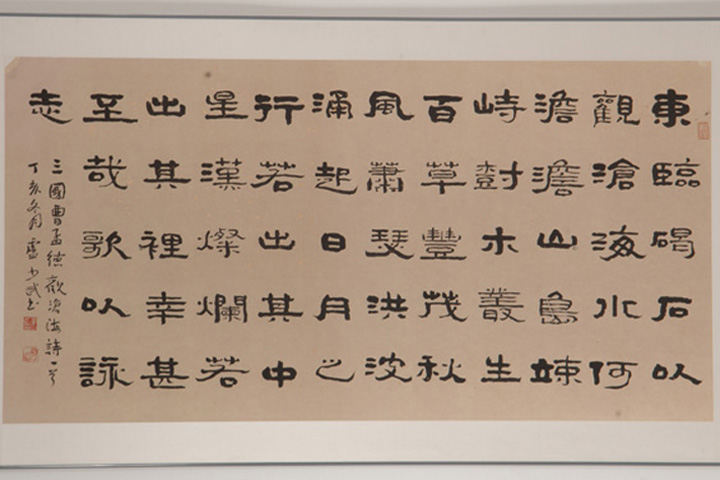 東臨碣石以
觀滄海水何
澹澹山島竦
峙樹木叢生
百草豐茂秋
風蕭瑟洪波
涌起日月之
行若出其中
星漢燦爛若
出其裡幸甚
至哉歌以詠
志
三國曹孟德觀滄海詩一首
丁亥冬月